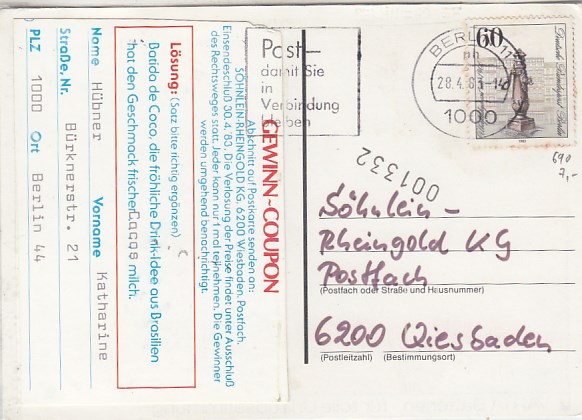 GEWINN-COUPON
Abschnitt auf Postkarte senden an:
SÖHNLEIN-RHEINGOLD KG, 6200 Wiesbaden, Postfach.
Einsendeschluß 30. 4. '83. Die Verlosung der Preise findet unter Ausschluß
des Rechtsweges statt. Jeder kann nur 1 mal teilnehmen. Die Gewinner
werden umgehend benachrichtigt.
Lösung: (Satz bitte richtig ergänzen)
Batida de Coco, die fröhliche Drink-Idee aus Brasilien
hat den Geschmack frischer Cocos milch.
Name Hübner Vorname Katharine
Straße, Nr. Bürknerstr. 21
PLZ 1000 Ort Berlin 44
Post–
damit Sie
in
Verbindung
bleiben
BERLIN 12
28.4.83-14
1000
60
Deutsche Bundespost Berlin
690
7,-
001332
Söhnlein –
Rheingold KG
Postfach
(Postfach oder Straße und Hausnummer)
6200 Wiesbaden
(Postleitzahl) (Bestimmungsort)